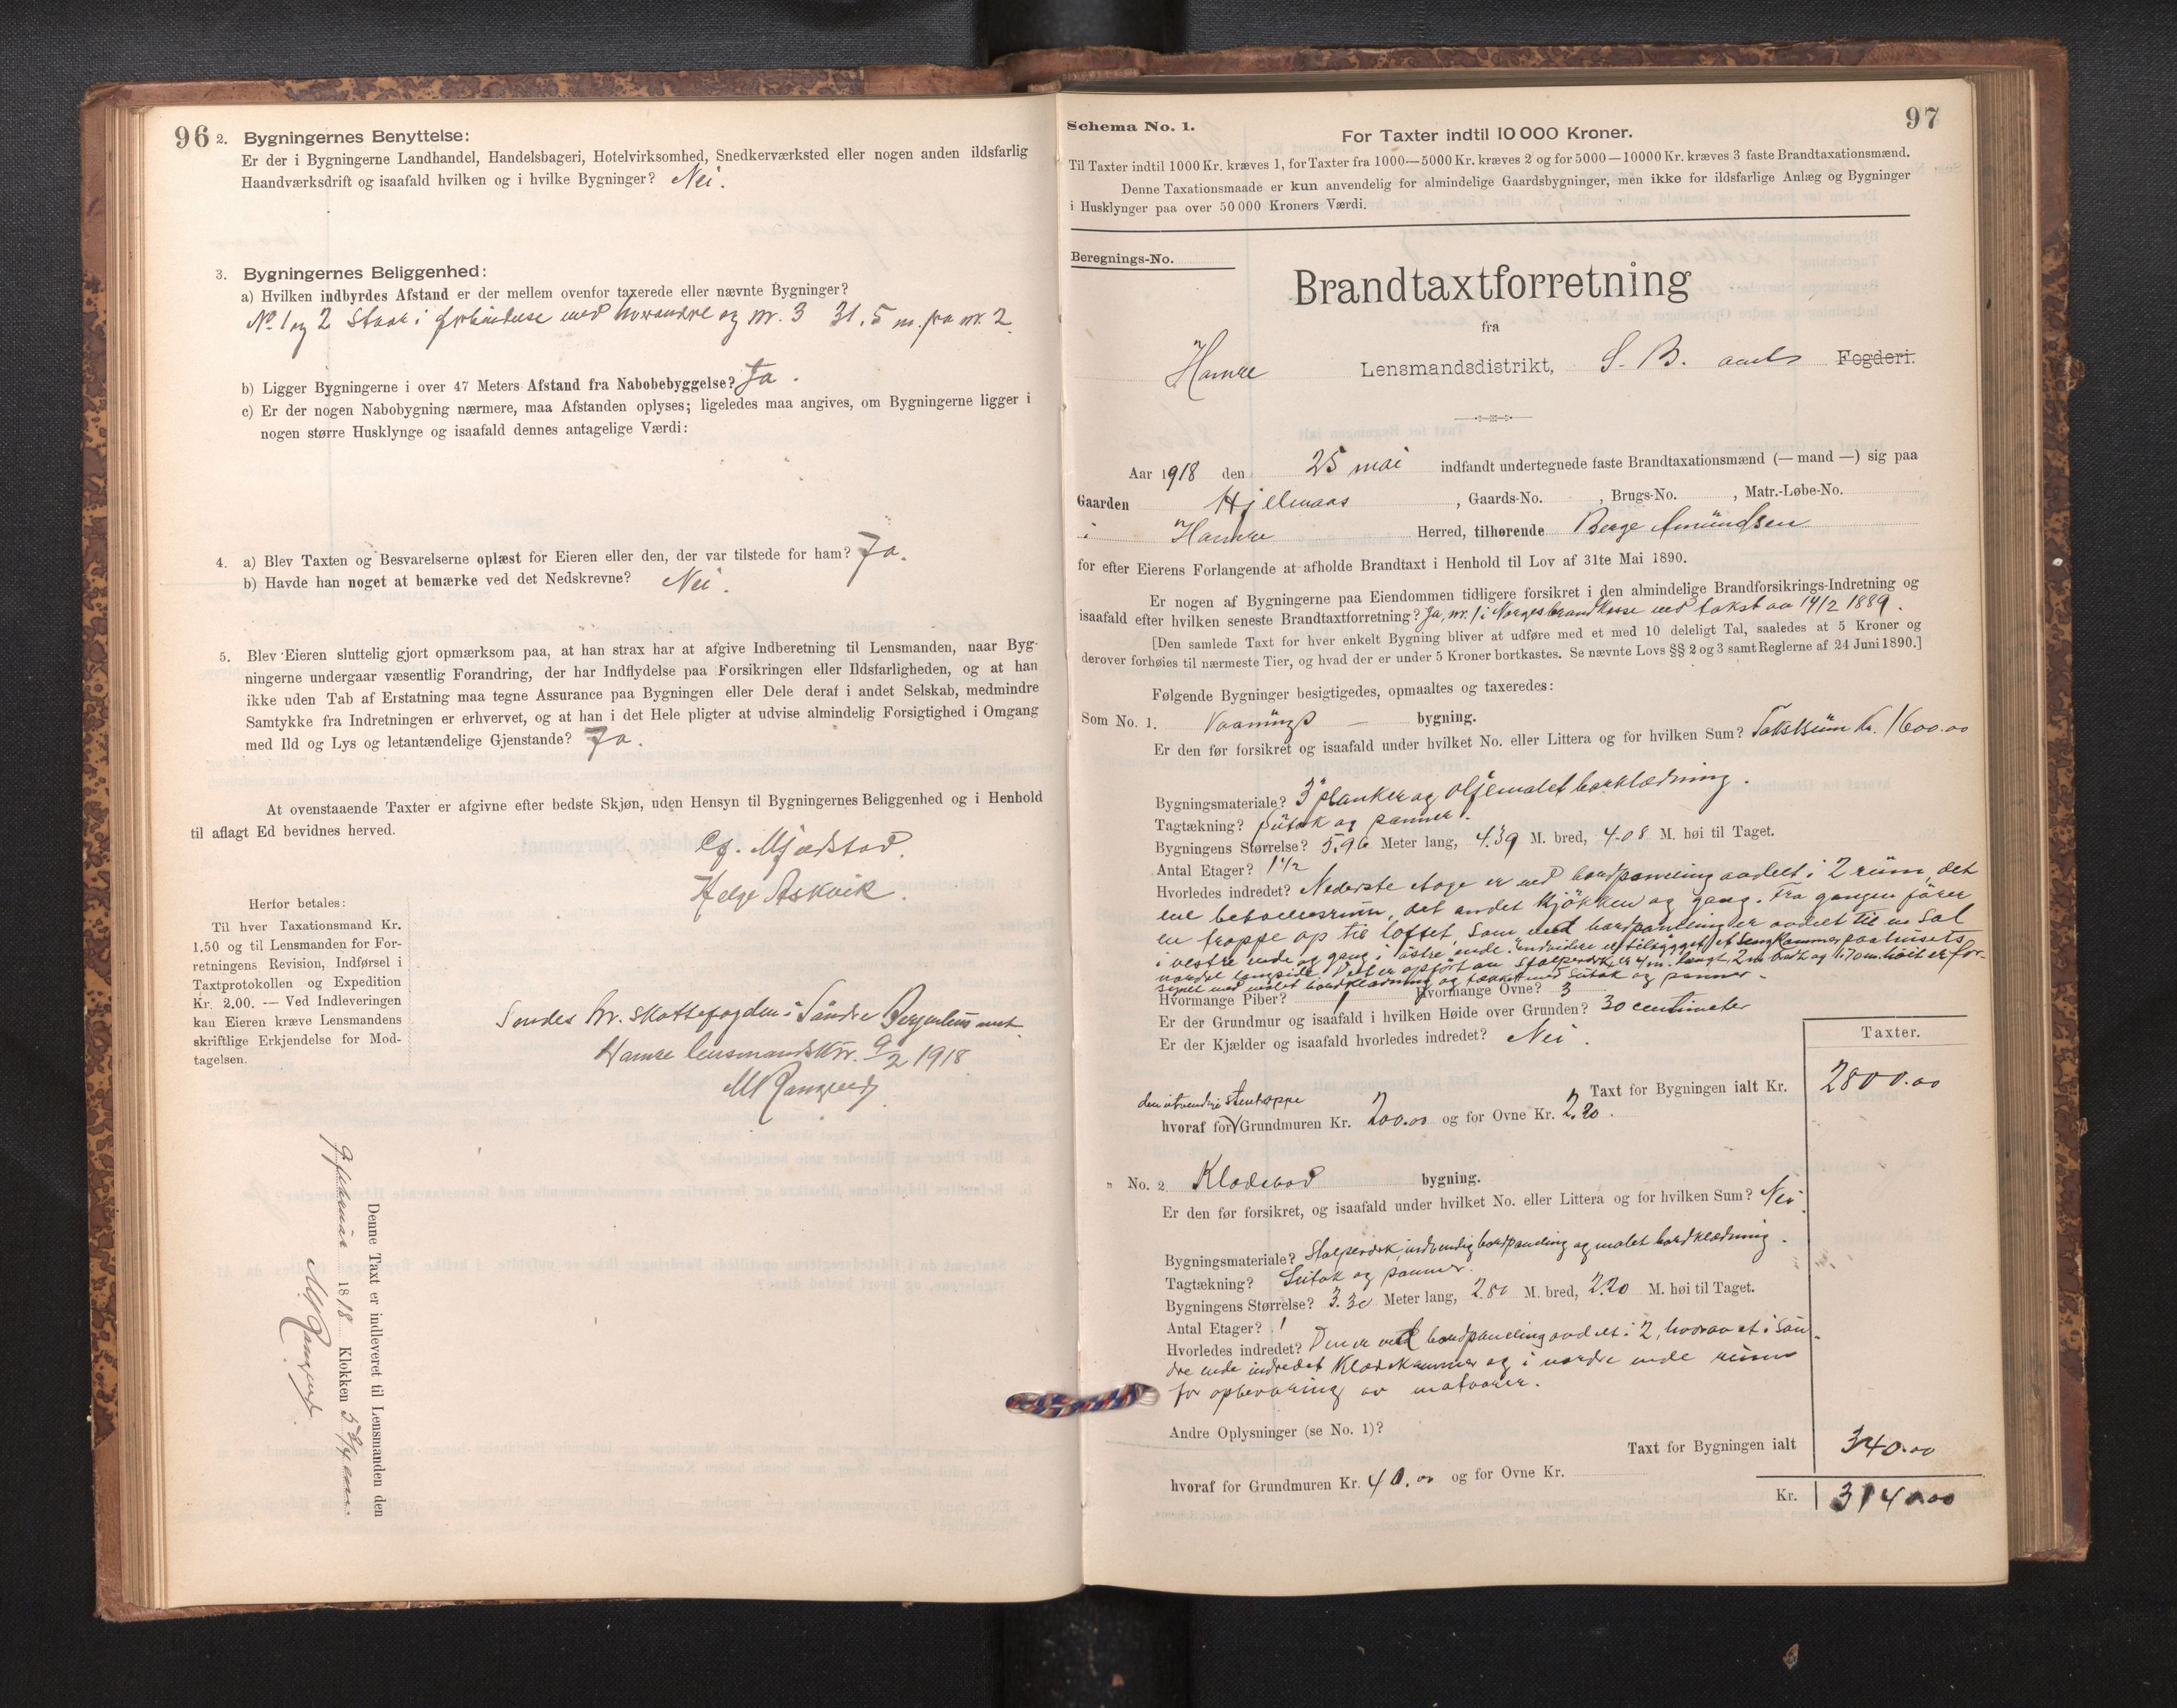 96 2. Bygningernes Benyttelse:
Er der i Bygningerne Landhandel, Handelsbageri, Hotelvirksomhed, Snedkerværksted eller nogen anden ildsfarlig
Haandværksdrift og isaafald hvilken og i hvilke Bygninger? Nei.
3. Bygningernes Beliggenhed:
a) Hvilken indbyrdes Afstand er der mellem ovenfor taxerede eller nævnte Bygninger?
No 1 og 2 Staar i forbindelse med hverandre og nr. 3 31.5 m. fra nr. 2
b) Ligger Bygningerne i over 47 Meters Afstand fra Nabobebyggelse? Ja.
c) Er der nogen Nabobygning nærmere, maa Afstanden oplyses; ligeledes maa angives, om Bygningerne ligger i
nogen større Husklynge og isaafald dennes antagelige Værdi:
4. a) Blev Taxten og Besvarelserne oplæst for Eieren eller den, der var tilstede for ham? Ja.
b) Havde han noget at bemærke ved det Nedskrevne? Nei.
5. Blev Eieren sluttelig gjort opmærksom paa, at han strax har at afgive Indberetning til Lensmanden, naar Byg-
ningerne undergaar væsentlig Forandring, der har Indflydelse paa Forsikringen eller Ildsfarligheden, og at han
ikke uden Tab af Erstatning maa tegne Assurance paa Bygningen eller Dele deraf i andet Selskab, medmindre
Samtykke fra Indretningen er erhvervet, og at han i det Hele pligter at udvise almindelig Forsigtighed i Omgang
med Ild og Lys og letantændelige Gjenstande? Ja.
At ovenstaaende Taxter er afgivne efter bedste Skjøn, uden Hensyn til Bygningernes Beliggenhed og i Henhold
til aflagt Ed bevidnes herved.
Mjødstad.
Helge Askvik.
Herfor betales:
Til hver Taxationsmand Kr.
1.50 og til Lensmanden for For-
retningens Revision, Indførsel i
Taxtprotokollen og Expedition
Kr. 2.00. — Ved Indleveringen
kan Eieren kræve Lensmandens
skriftlige Erkjendelse for Mod-
tagelsen.
Sendes hr. skattefogden i Søndre Bergenhus amt
Hamre lensmandsktr. 9/2 1918
Denne Taxt er indleveret til Lensmanden den
9 februar 1818 Klokken 5
Schema No. 1.
97
For Taxter indtil 10 000 Kroner.
Til Taxter indtil 1000 Kr. kræves 1, for Taxter fra 1000—5000 Kr. kræves 2 og for 5000—10000 Kr. kræves 3 faste Brandtaxationsmænd.
Denne Taxationsmaade er kun anvendelig for almindelige Gaardsbygninger, men ikke for ildsfarlige Anlæg og Bygninger
i Husklynger paa over 50 000 Kroners Værdi.
Beregnings-No.
Brandtaxtforretning
fra
Hamre Lensmandsdistrikt, S. B. amts Fogderi.
Aar 1918 den 25 mai indfandt undertegnede faste Brandtaxationsmænd (— mand —) sig paa
Gaarden Hjelmaas, Gaards-No. , Brugs-No. , Matr.-Løbe-No.
i Hamre Herred, tilhørende Berge Amundsen
for efter Eierens Forlangende at afholde Brandtaxt i Henhold til Lov af 31te Mai 1890.
Er nogen af Bygningerne paa Eiendommen tidligere forsikret i den almindelige Brandforsikrings-Indretning og
isaafald efter hvilken seneste Brandtaxtforretning? Ja, nr. 1 i Norges brandkasse ved takst av 14/2 1889.
[Den samlede Taxt for hver enkelt Bygning bliver at udføre med et med 10 deleligt Tal, saaledes at 5 Kroner og
derover forhøies til nærmeste Tier, og hvad der er under 5 Kroner bortkastes. Se nævnte Lovs §§ 2 og 3 samt Reglerne af 24 Juni 1890.]
Følgende Bygninger besigtigedes, opmaaltes og taxeredes:
Som No. 1. Vaanings — bygning.
Er den før forsikret og isaafald under hvilket No. eller Littera og for hvilken Sum? Takstsum kr. 1600.00
Bygningsmateriale? 3" planker og oljemalet bordklædning.
Tagtækning? Sutak og panner.
Bygningens Størrelse? 5.96 Meter lang, 4.39 M. bred, 4.08 M. høi til Taget.
Antal Etager? 1 1/2
Hvorledes indredet? Nederste etage er ved bordpaneling avdelt i 2 rum, det
ene beboelsesrum, det andet kjøkken og gang. Fra gangen fører
en trappe op til loftet, som ved bordpaneling er avdelt til en sal
i vestre ende og gang i østre ende. Endvidere er tilbygget et sengkammer paa husets
nordre langside. Det er opført av stolpeverk, er 4 m. langt, 2 m. bredt og 1.70 m. høit er for-
synet med malet bordklædning og tækket med sutak og panner.
Hvormange Piber? 1 Hvormange Ovne? 3
Er der Grundmur og isaafald i hvilken Høide over Grunden? 30 centimeter
Er der Kjælder og isaafald hvorledes indredet? Nei.
Taxter.
Taxt for Bygningen ialt Kr. 2800.00
den utvendige stentrappe
hvoraf for Grundmuren Kr. 200.00 og for Ovne Kr. 2.20.
" No. 2 Klædebod bygning.
Er den før forsikret, og isaafald under hvilket No. eller Littera og for hvilken Sum? Nei.
Bygningsmateriale? Stolpeverk, indvendig bordpaneling og malet bordklædning.
Tagtækning? Sutak og panner.
Bygningens Størrelse? 3.30 Meter lang, 2.80 M. bred, 2.20 M. høi til Taget.
Antal Etager? 1
Hvorledes indredet? Den er ved bordpaneling avdelt i 2, hvorav et i søn-
dre ende indredet klædekammer og i nordre ende rum
for opbevaring av matvarer.
Andre Oplysninger (se No. 1)?
Taxt for Bygningen ialt 340.00
hvoraf for Grundmuren Kr. 40.00 og for Ovne Kr.
Kr. 3140.00